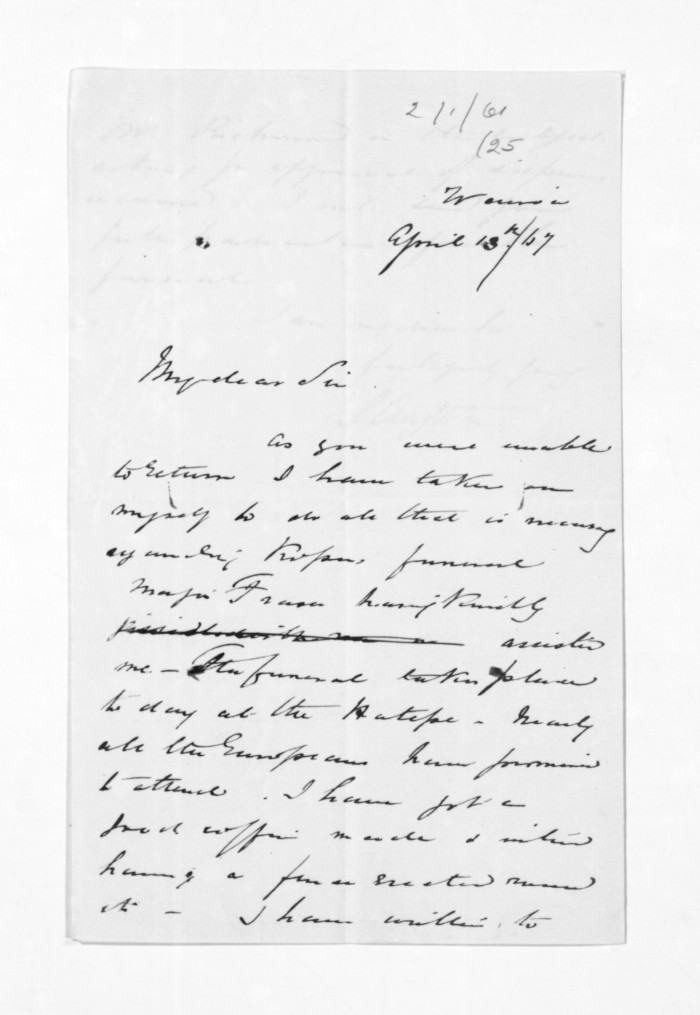 2/1/61
/25
Wairoa
April 13th/67
My dear Sir
As you were unable
to return I have taken on
myself to do all that is necessary
regarding Kopu's funeral
Major Fraser having kindly
assisted
me - The funeral takes place
to day at the Hatepe - Nearly
all the Europeans have promised
to attend. I have got a
good coffin made & intend
having a fence erected round
it - I have written to